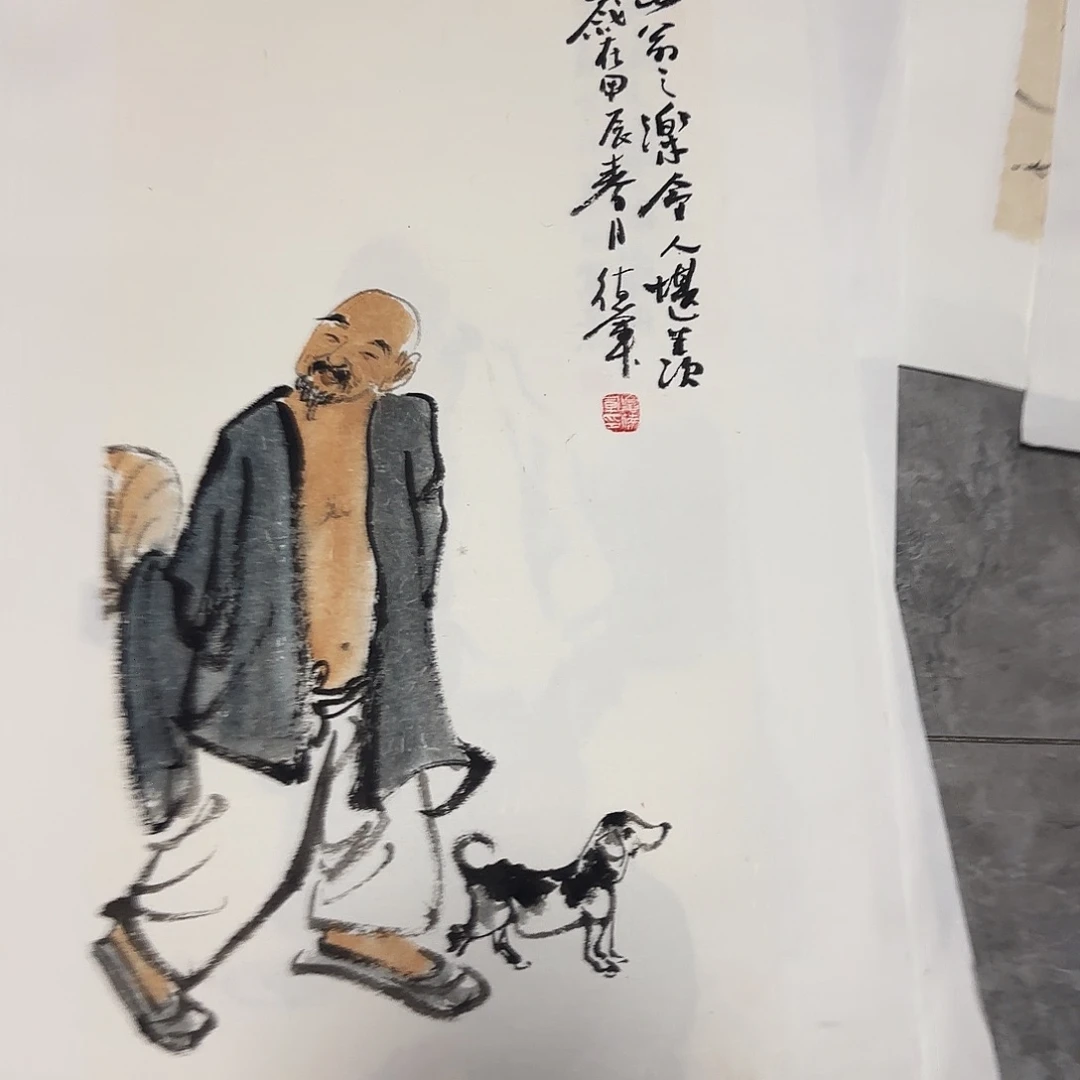 翁之樂令人堪羡
歲在甲辰春月德軍